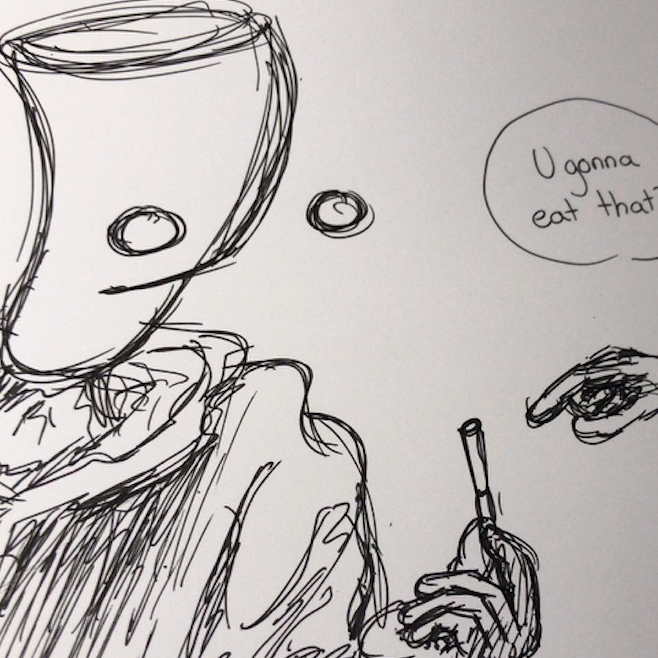 U gonna
eat that?